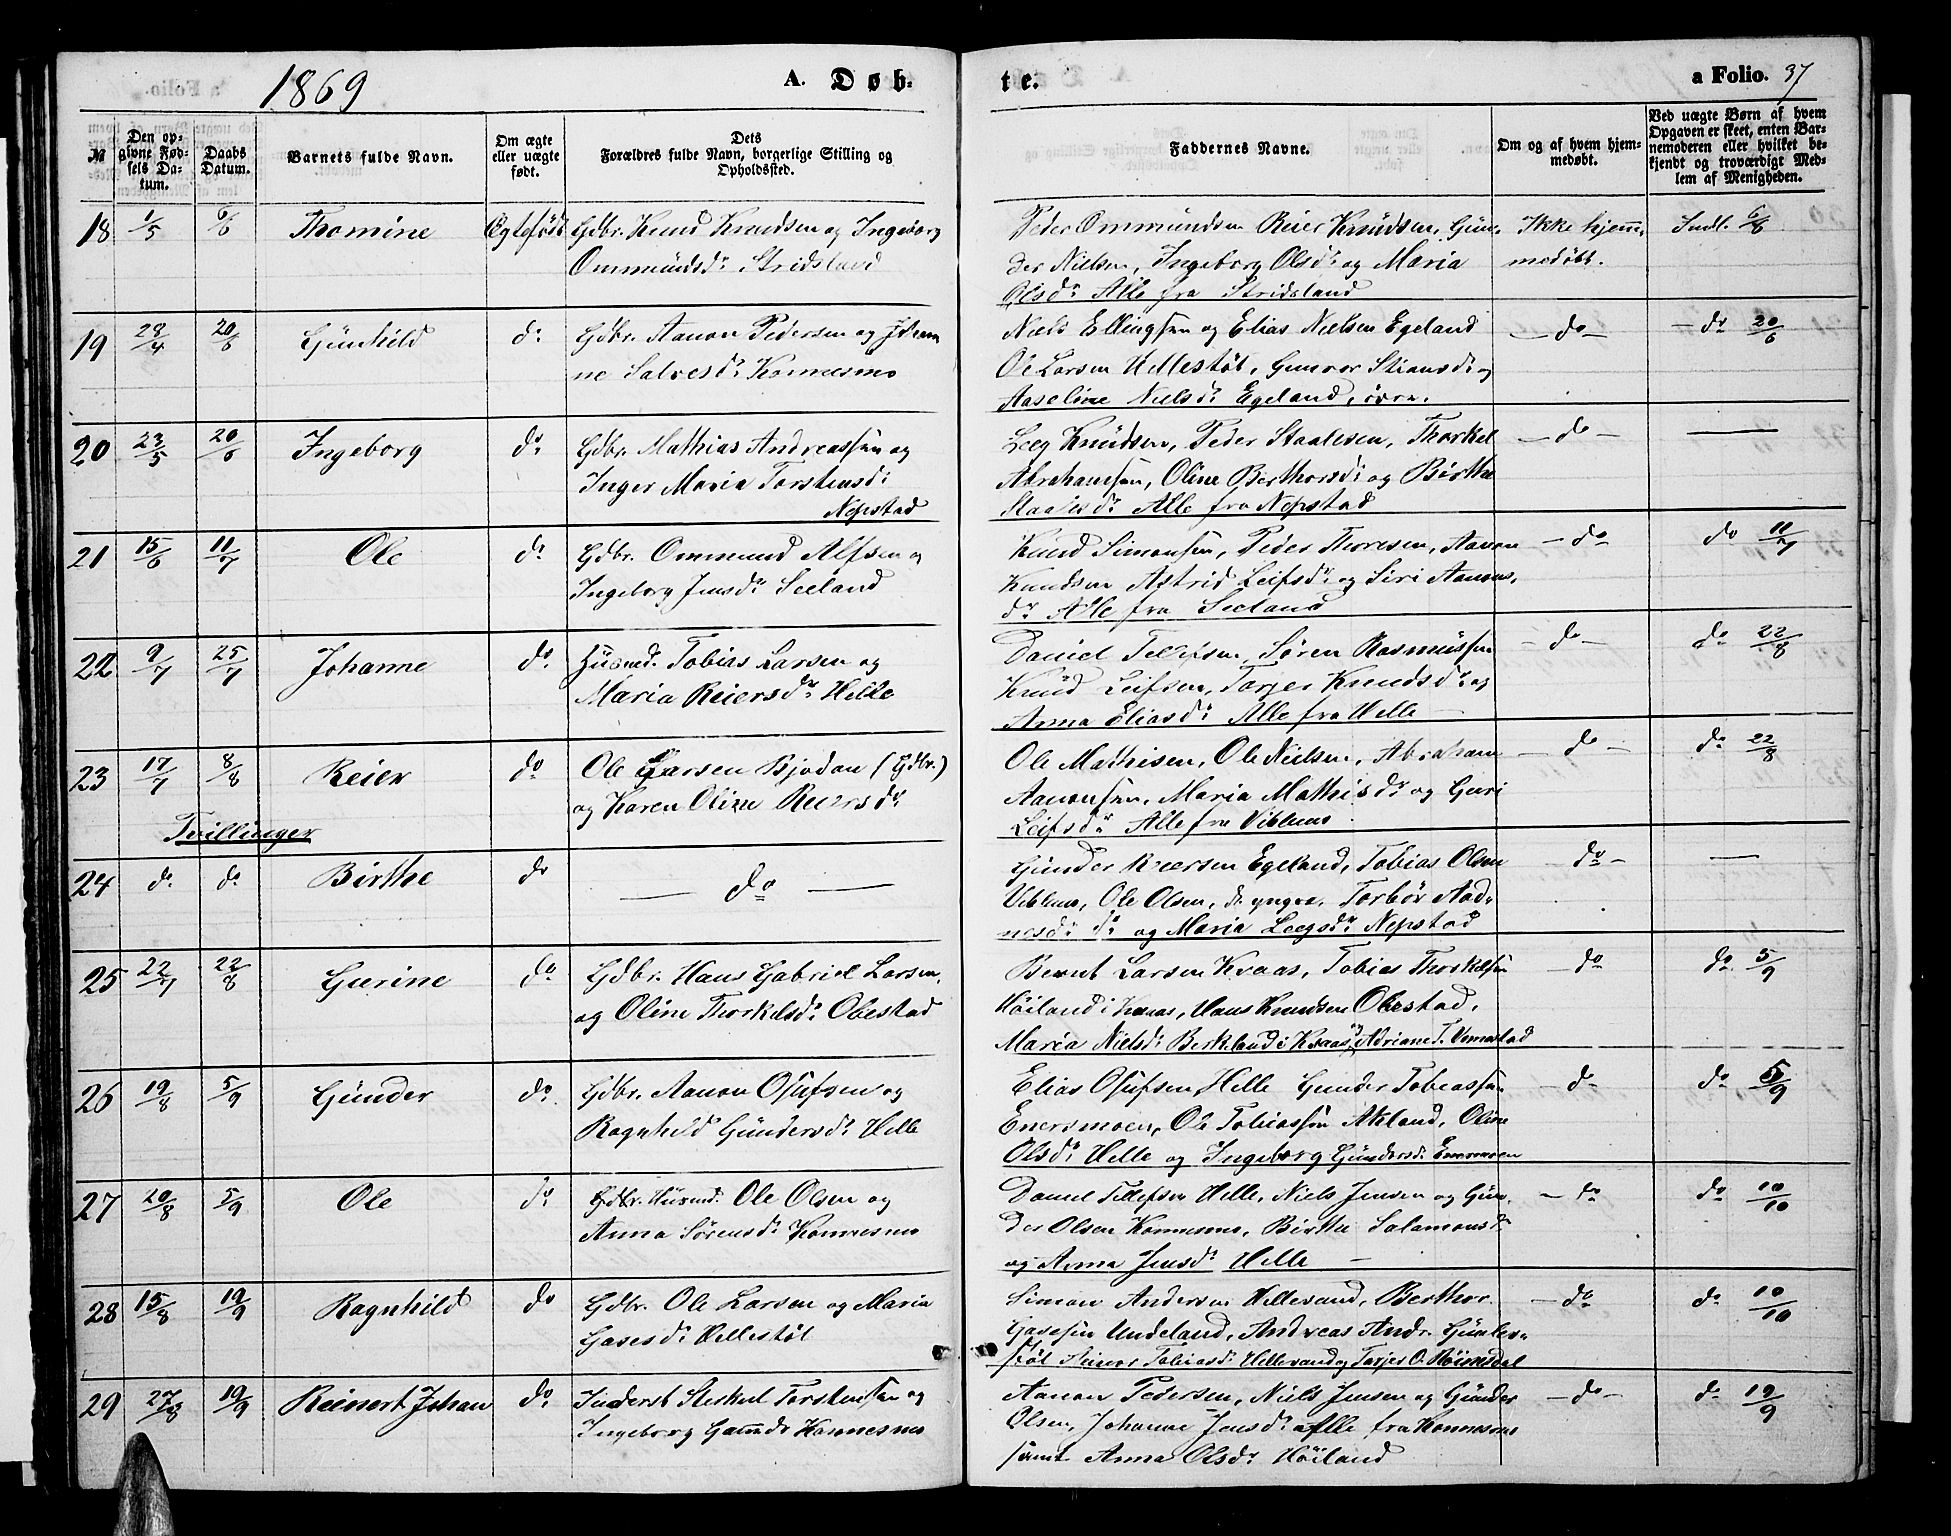 1869
A. Døb-
te.
a Folio. 37
№
Den opgivne Fødsels Datum.
Daabs Datum.
Barnets fulde Navn.
Om ægte eller uægte født.
Dets Forældres fulde Navn, borgerlige Stilling og Opholdssted.
Faddernes Navne.
Om og af hvem hjemmedøbt.
Ved uægte Børn af hvem Opgaven er skeet, enten Barnemoderen eller hvilket bekjendt og troværdigt Medlem af Menigheden.
18 1/5 6/6 Thomine Ægtefødt Gdbr. Knud Knudsen og Ingeborg
Ommundsdr Stridsland
Peder Ommundsen Reier Knudsen, Gun-
der Nielsen, Ingeborg Olsdr og Maria
Olsdr Alle fra Stridsland
Ikke hjem-
medøbt.
Indl. 6/6
19 28/4 20/6 Gunhild do Gdbr. Aanon Pedersen og Johan
ne Salvesdr Konnesmo
Niels Ellingsen og Elias Nielsen Egeland
Ole Larsen Hellestøl, Gunvor Stiansdr og
Aaseline Nielsdr Egeland, øvre.
— do —
— do 20/6
20 23/5 20/6 Ingeborg do Gdbr. Mathias Andreassen og
Inger Maria Torstensdr
Nepstad
Leeg Knudsen, Peder Staalesen, Thorkel
Abrahamsen, Oline Berthorsdr og Birthe
Staalesdr Alle fra Nepstad
— do —
—
21 15/6 11/7 Ole do Gdbr. Ommund Alfsen og
Ingeborg Jensdr Seeland
Knud Simonsen, Peder Thoresen, Aanon
Knudsen Astrid Leifsdr og Siri Aanons-
dr Alle fra Seeland
— do
do 11/7
22 9/7 25/7 Johanne do Husmd. Tobias Larsen og
Maria Reiersdr Helle
Daniel Tellefsen, Søren Rasmussen
Knud Leifsen, Torjer Knudsdr og
Anna Eliasdr Alle fra Helle —
— do —
do 22/8
23 17/7 8/8 Reier do Ole Larsen Bjodan (Gdbr.)
og Karen Oline Reiersdr
Ole Mathisen, Ole Nielsen, Abraham
Aanonsen, Maria Mathisdr og Guri
Leifsdr Alle fra Viblemo
— do —
do 22/8
Tvillinger
24 do do Birthe do — do —
Gunder Reiersen Egeland, Tobias Olsen
Viblemo, Ole Olsen, do yngre. Torbør Aad-
nesdr do og Maria Leegsdr Nepstad
— do —
—
25 22/7 22/8 Gurine do Gdbr. Hans Gabriel Larsen
og Oline Thorkelsdr Obestad
Bernt Larsen Kvaas, Tobias Thorkelsen
Høiland i Kvaas, Hans Knudsen Obestad,
Maria Nielsdr Berkeland i Kvaas, Adriane T.
— do
do 5/9
26 19/8 5/9 Gunder do Gdbr. Aanon Olufsen og
Ragnhild Gundersdr Helle
Elias Olufsen Helle Gunder Tobiassen
Enersmoen, Ole Tobiassen Akland, Oline
Olsdr Helle og Ingeborg Gundersdr
— do
do 5/9
27 20/8 5/9 Ole do Husmd. Ole Olsen og
Anna Sørensdr Konnesmo
Daniel Tellefsen Helle, Niels Jensen og Gun-
der Olsen Konnesmo, Birthe Salamonsdr
og Anna Jensdr Helle —
— do
do 10/10
28 15/8 19/9 Ragnhild do Gdbr. Ole Larsen og Maria
Gasesdr Hellestøl
Simon Andersen Hellevand, Berthor
Gasesen Undeland, Andreas Andr. Gunles-
støl Tobiasdr Hellevand og Torjer O.
— do
do 10/10
29 27/8 19/9 Reinert Johan do Inderst Torstensen og
Ingeborg Konnesmo
Aanon Pedersen, Niels Jensen og Gunder
Olsen, Johanne Jensdr Alle fra Konnesmo
samt Anna Olsdr Høiland
— do —
do 19/9